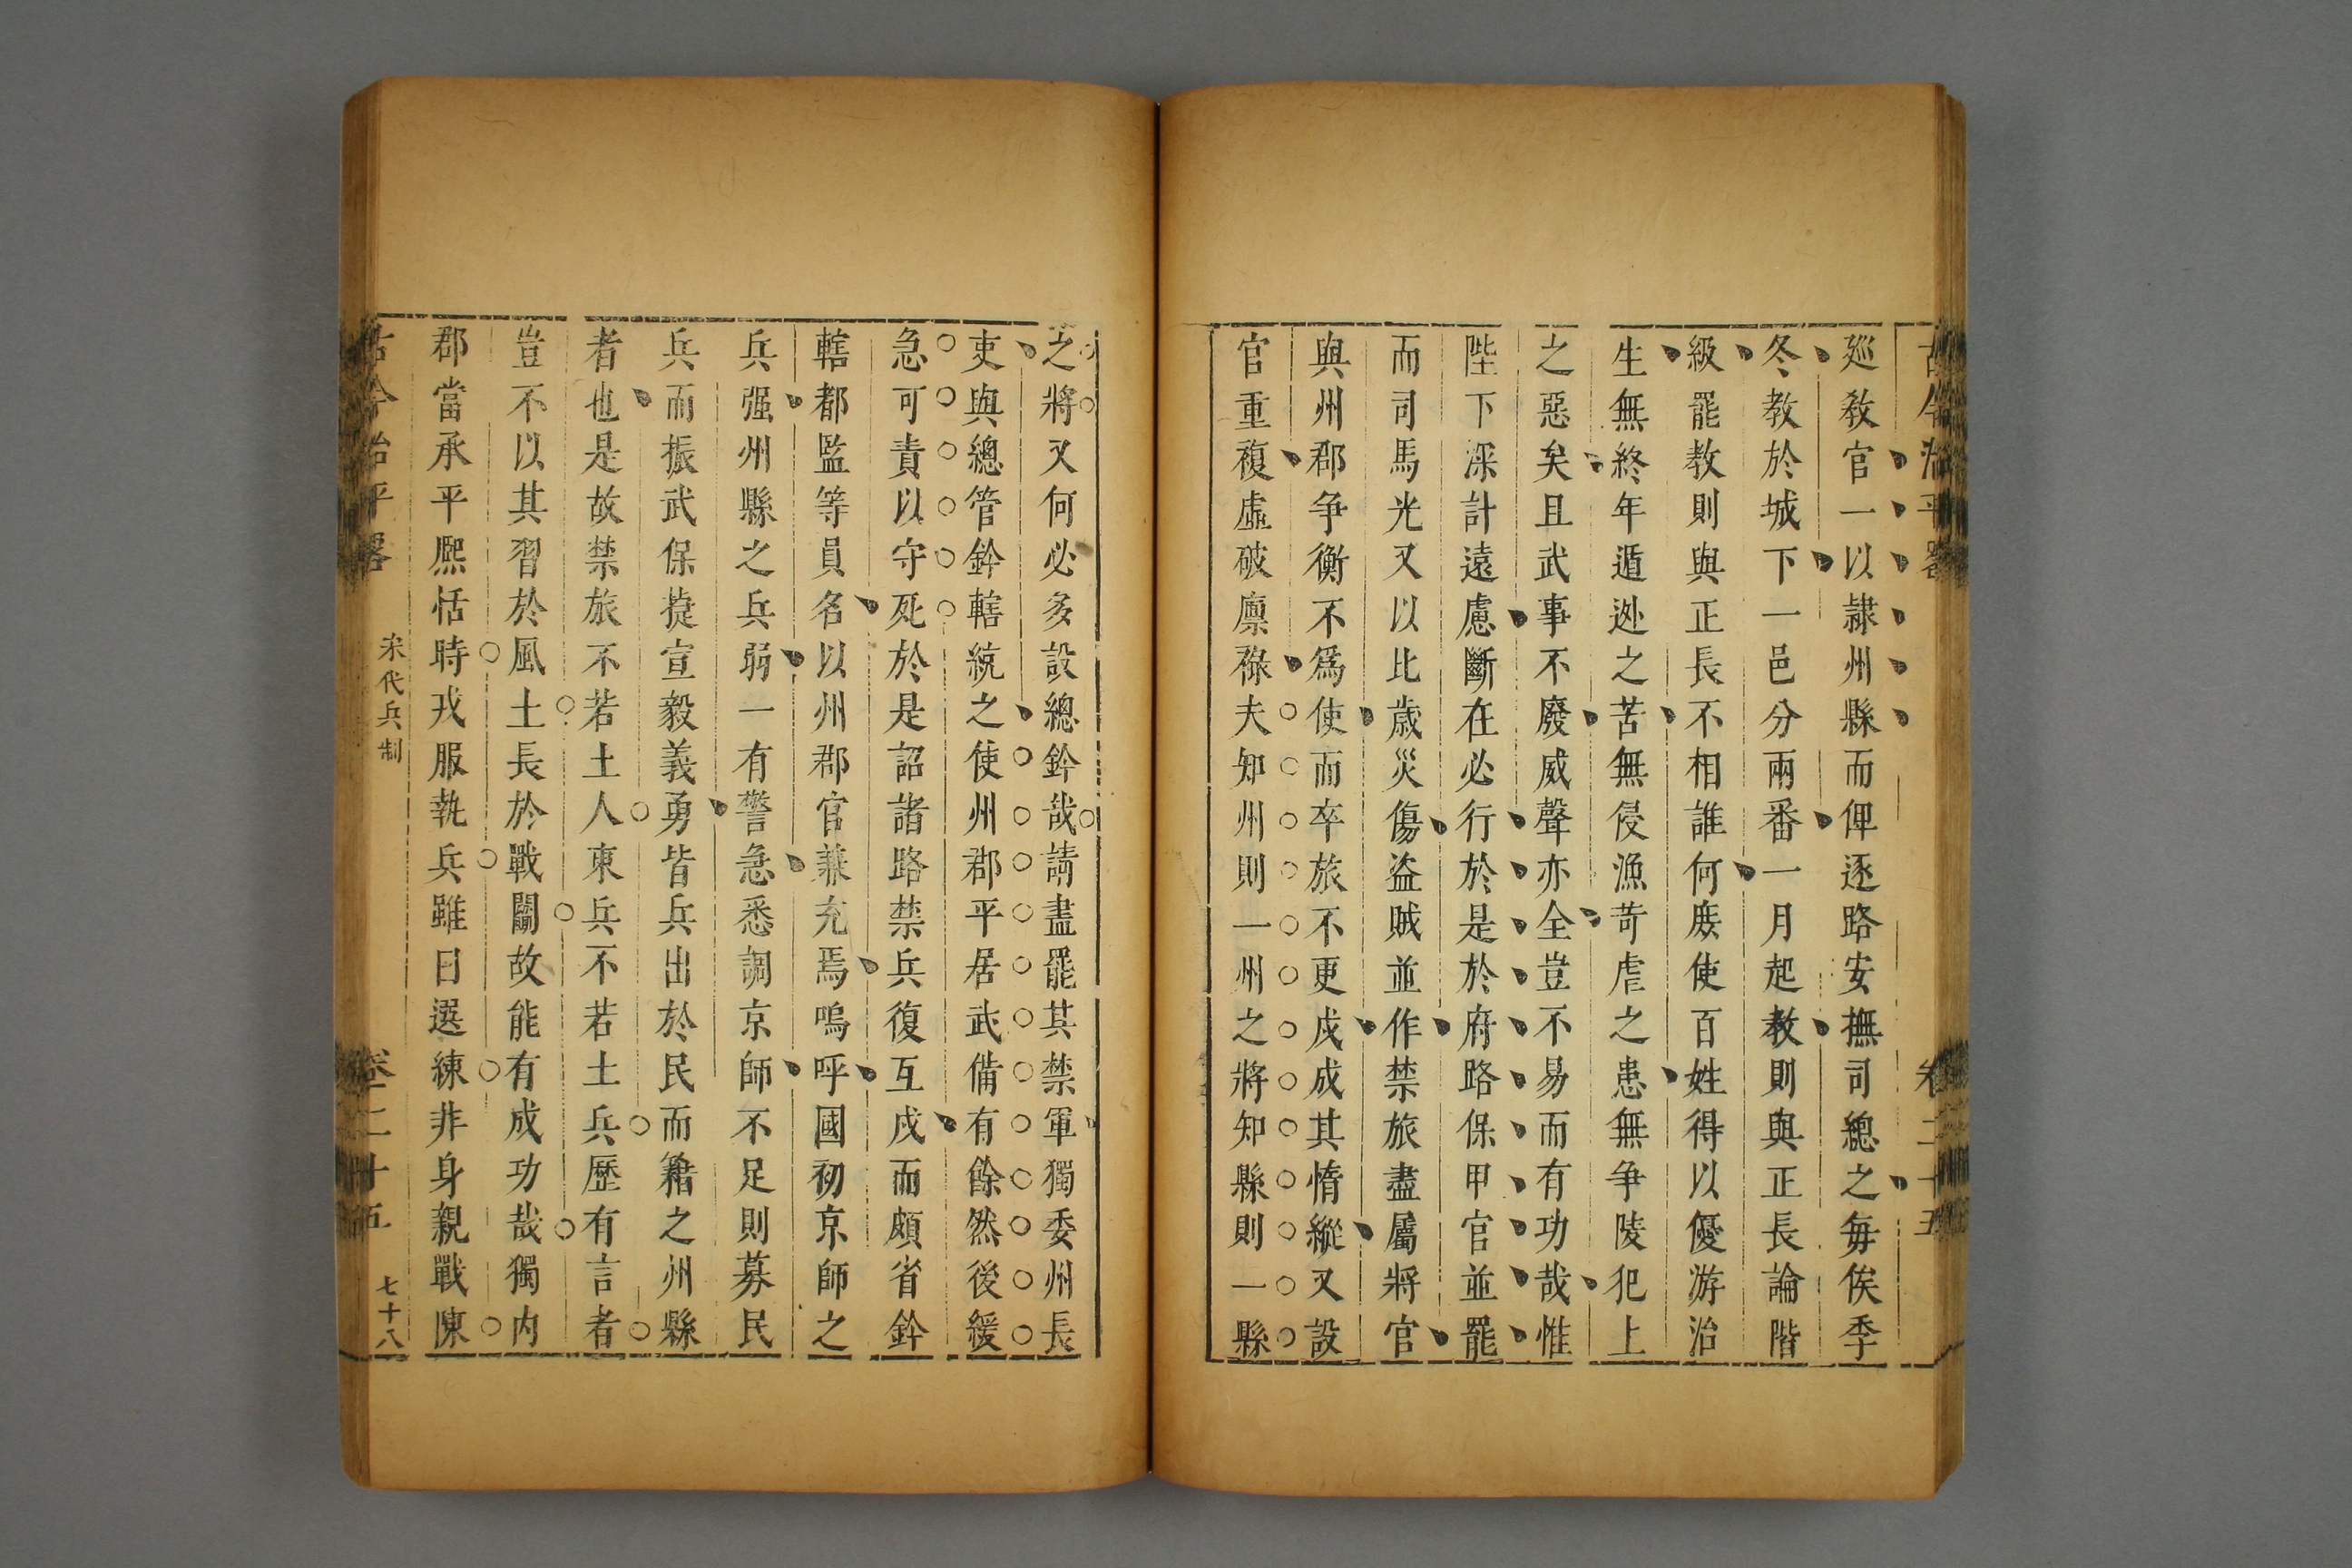 古今治平畧 卷二十五
廵敎官一以隷州縣而俾逐路安撫司緫之每俟季
冬教於城下一邑分兩番一月起教則與正長論階
級罷教則與正長不相誰何庻使百姓得以優游治
生無終年遁逊之苦無侵漁苛虐之患無爭陵犯上
之惡矣且武事不廢威聲亦全豈不易而有功哉惟
陛下深計遠慮斷在必行於是於府路保甲官並罷
而司馬光又以比歲災傷盗賊並作禁旅盡屬將官
與州郡争衡不爲使而卒旅不更戍成其惰縱又設
官重複虛破廪祿夫知州則一州之將知縣則一縣
之將又何必多設總鈐哉請盡罷其禁軍獨委州長
吏與總管鈐轄統之使州郡平居武備有餘然後緩
急可責以守死於是詔諸路禁兵復互戍而頗省鈐
轄都監等員名以州郡官兼充焉嗚呼國初京師之
兵强州縣之兵弱一有警急悉調京師不足則募民
兵而振武保㨗宣毅義勇皆兵出於民而籍之州縣
者也是故禁旅不若土人東兵不若土兵歷有言者
豈不以其習於風土長於戰鬬故能有成功哉獨内
郡當承平熈恬時戎服執兵雖曰選練非身親戰陳
古今治平畧 宋代兵制 卷二十五 七十八